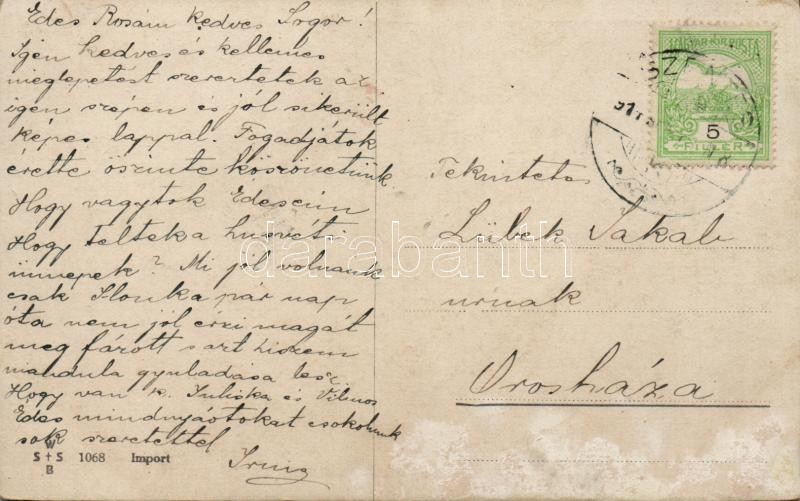 Édes Rózám kedves Sógor!
Igen kedves és kellemes
meglepetést szereztetek az
igen szépen és jól sikerült
képes lappal. Fogadjátok
érette őszinte köszönetünk
Hogy vagytok Édeseim
Hogy teltek a husvéti
ünnepek? Mi jól volnánk
csak Ilonka pár nap
óta nem jól érzi magát
meg fázott s azt hiszem
mandula gyuladása lesz.
Hogy van k. Juliska és Vilmos
Édes mindnyájótokat csokolunk
sok szeretettel
Irma
W
S + S
B
1068 Import
MAGYAR KIR. POSTA
5
FILLÉR
Tekintetes
Lübek Jakab
urnak
Orosháza
darabanth